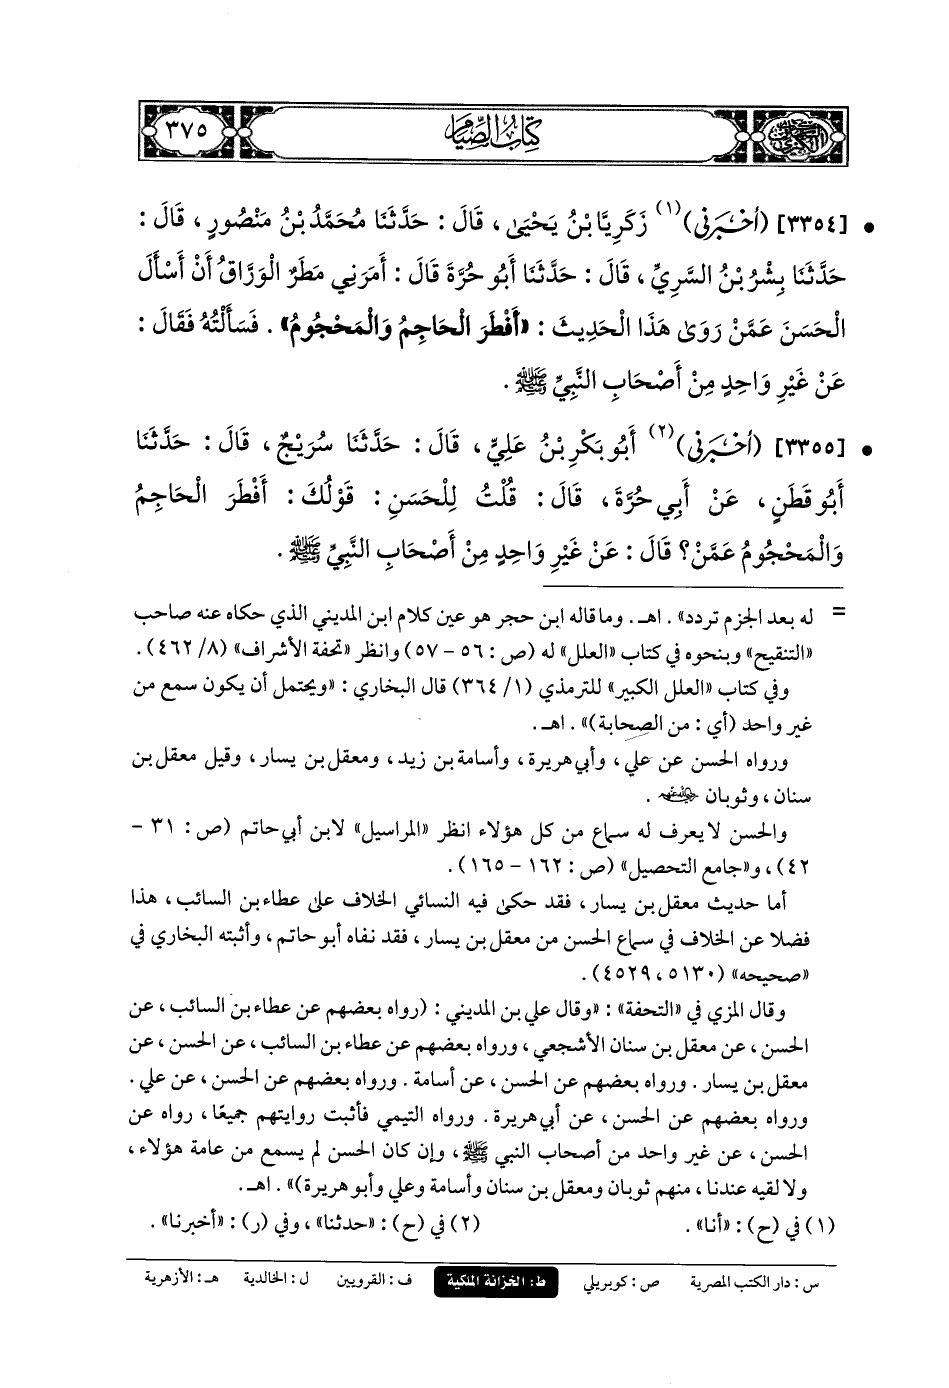 السنن الكبرى كتاب الصيام ٣٧٥
• [٣٣٥٤] (أخبرني)(١) زَكَرِيَّا بْنُ يَحْيَى، قَالَ: حَدَّثَنَا مُحَمَّدُ بْنُ مَنْصُورٍ، قَالَ:
حَدَّثَنَا بِشْرُ بْنُ السَّرِيِّ، قَالَ: حَدَّثَنَا أَبُو حُرَّةَ قَالَ: أَمَرَنِي مَطَرٌ الْوَرَّاقُ أَنْ أَسْأَلَ
الْحَسَنَ عَمَّنْ رَوَى هَذَا الْحَدِيثَ: «أَفْطَرَ الْحَاجِمُ وَالْمَحْجُومُ». فَسَأَلْتُهُ فَقَالَ:
عَنْ غَيْرِ وَاحِدٍ مِنْ أَصْحَابِ النَّبِيِّ ﷺ.
• [٣٣٥٥] (أخبرني)(٢) أَبُو بَكْرِ بْنُ عَلِيٍّ، قَالَ: حَدَّثَنَا سُرَيْجٌ، قَالَ: حَدَّثَنَا
أَبُو قَطَنٍ، عَنْ أَبِي حُرَّةَ، قَالَ: قُلْتُ لِلْحَسَنِ: قَوْلُكَ: أَفْطَرَ الْحَاجِمُ
وَالْمَحْجُومُ عَمَّنْ؟ قَالَ: عَنْ غَيْرِ وَاحِدٍ مِنْ أَصْحَابِ النَّبِيِّ ﷺ.
= له بعد الجزم تردد». اهـ. وما قاله ابن حجر هو عين كلام ابن المديني الذي حكاه عنه صاحب
«التنقيح» وبنحوه في كتاب «العلل» له (ص: ٥٦ - ٥٧) وانظر «تحفة الأشراف» (٨/ ٤٦٢).
وفي كتاب «العلل الكبير» للترمذي (١/ ٣٦٤) قال البخاري: «ويحتمل أن يكون سمع من
غير واحد (أي: من الصحابة)». اهـ.
ورواه الحسن عن علي، وأبي هريرة، وأسامة بن زيد، ومعقل بن يسار، وقيل معقل بن
سنان، وثوبان رضي الله عنهم.
والحسن لا يعرف له سماع من كل هؤلاء انظر «المراسيل» لابن أبي حاتم (ص: ٣١ -
٤٢)، و«جامع التحصيل» (ص: ١٦٢ - ١٦٥).
أما حديث معقل بن يسار، فقد حكى فيه النسائي الخلاف على عطاء بن السائب، هذا
فضلا عن الخلاف في سماع الحسن من معقل بن يسار، فقد نفاه أبو حاتم، وأثبته البخاري في
«صحيحه» (٥١٣٠، ٤٥٢٩).
وقال المزي في «التحفة»: «وقال علي بن المديني: (رواه بعضهم عن عطاء بن السائب، عن
الحسن، عن معقل بن سنان الأشجعي، ورواه بعضهم عن عطاء بن السائب، عن الحسن، عن
معقل بن يسار. ورواه بعضهم عن الحسن، عن أسامة. ورواه بعضهم عن الحسن، عن علي.
ورواه بعضهم عن الحسن، عن أبي هريرة. ورواه التيمي فأثبت روايتهم جميعًا، رواه عن
الحسن، عن غير واحد من أصحاب النبي ﷺ، وإن كان الحسن لم يسمع من عامة هؤلاء،
ولا لقيه عندنا، منهم ثوبان ومعقل بن سنان وأسامة وعلي وأبو هريرة)». اهـ.
(١) في (ح): «أنا». (٢) في (ح): «حدثنا»، وفي (ر): «أخبرنا».
س: دار الكتب المصرية ص: كوبريلي ط: الخزانة الملكية ف: القرويين ل: الخالدية هـ: الأزهرية